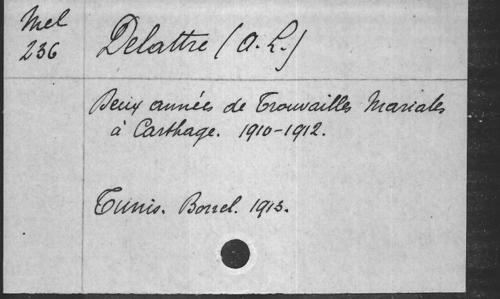 Mel
236
Delattre (A. L.)
Deux années de Trouvailles Mariales
à Carthage. 1910-1912.
Tunis. 1913.